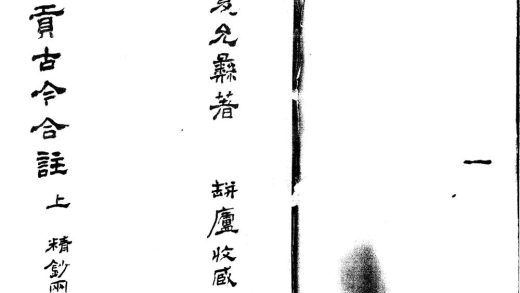 一
夏允彝著 缾廬收藏
貢古今合註 上 精鈔兩